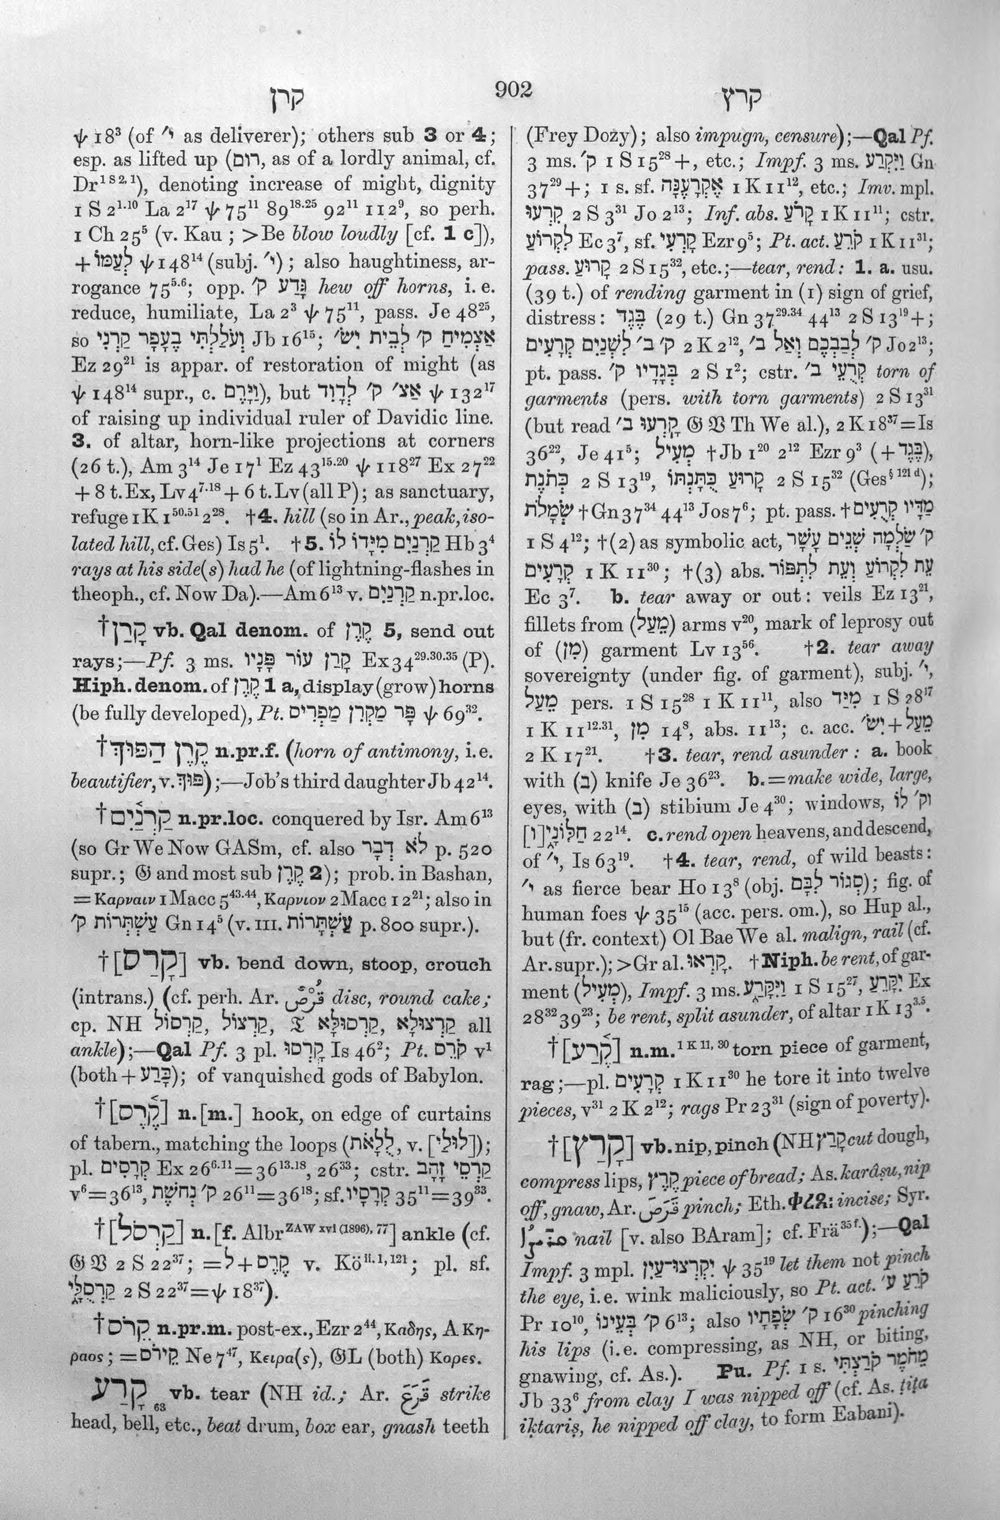 קרן
902
קרץ
ψ 18³ (of ׳י as deliverer); others sub 3 or 4;
esp. as lifted up (רום, as of a lordly animal, cf.
Dr¹ ˢ ²,¹), denoting increase of might, dignity
1 S 2¹·¹⁰ La 2¹⁷ ψ 75¹¹ 89¹⁸·²⁵ 92¹¹ 112⁹, so perh.
1 Ch 25⁵ (v. Kau ; >Be blow loudly [cf. 1 c]),
+ לְעַמּוֹ ψ 148¹⁴ (subj. ׳י); also haughtiness, ar-
rogance 75⁵·⁶; opp. גִּדַּע ק׳ hew off horns, i. e.
reduce, humiliate, La 2³ ψ 75¹¹, pass. Je 48²⁵,
so וְעֹלַלְתִּי בֶעָפָר קַרְנִי Jb 16¹⁵; אַצְמִיחַ ק׳ לְבֵית יִשׂ׳
Ez 29²¹ is appar. of restoration of might (as
ψ 148¹⁴ supr., c. וַיָּרֶם), but אַצְ׳ ק׳ לְדָוִד ψ 132¹⁷
of raising up individual ruler of Davidic line.
3. of altar, horn-like projections at corners
(26 t.), Am 3¹⁴ Je 17¹ Ez 43¹⁵·²⁰ ψ 118²⁷ Ex 27²²
+ 8 t. Ex, Lv 4⁷·¹⁸ + 6 t. Lv (all P); as sanctuary,
refuge 1 K 1⁵⁰·⁵¹ 2²⁸. †4. hill (so in Ar., peak, iso-
lated hill, cf. Ges) Is 5¹. †5. קַרְנַיִם מִיָּדוֹ לוֹ Hb 3⁴
rays at his side(s) had he (of lightning-flashes in
theoph., cf. Now Da).—Am 6¹³ v. קַרְנַיִם n.pr.loc.
†קָרַן vb. Qal denom. of קֶרֶן 5, send out
rays;—Pf. 3 ms. קָרַן עוֹר פָּנָיו Ex 34²⁹·³⁰·³⁵ (P).
Hiph. denom. of קֶרֶן 1 a, display (grow) horns
(be fully developed), Pt. פָּר מַקְרִן מַפְרִיס ψ 69³².
†קֶרֶן הַפּוּךְ n.pr.f. (horn of antimony, i.e.
beautifier, v. פּוּךְ);—Job's third daughter Jb 42¹⁴.
†קַרְנַיִם n.pr.loc. conquered by Isr. Am 6¹³
(so Gr We Now GASm, cf. also לֹא דָבָר p. 520
supr.; 𝔊 and most sub קֶרֶן 2); prob. in Bashan,
= Καρναιν 1 Macc 5⁴³·⁴⁴, Καρνιον 2 Macc 12²¹; also in
עַשְׁתְּרוֹת ק׳ Gn 14⁵ (v. III. עַשְׁתָּרוֹת p. 800 supr.).
†[קָרַס] vb. bend down, stoop, crouch
(intrans.) (cf. perh. Ar. قُرْص disc, round cake;
cp. NH קַרְסוֹל, קַרְצוֹל, 𝔗 קַרְסוּלָּא, קַרְצוּלָא all
ankle);—Qal Pf. 3 pl. קָרְסוּ Is 46²; Pt. קֹרֵס v¹
(both + כָּרַע); of vanquished gods of Babylon.
†[קֶרֶס] n.[m.] hook, on edge of curtains
of tabern., matching the loops (לֻלָאֹת, v. [לוּלַי]);
pl. קְרָסִים Ex 26⁶·¹¹=36¹³·¹⁸, 26³³; cstr. קַרְסֵי זָהָב
v⁶=36¹³, ק׳ נְחֹשֶׁת 26¹¹=36¹⁸; sf. קְרָסָיו 35¹¹=39³³.
†[קַרְסֹל] n.[f. Albr ZAW xvi (1896), 77] ankle (cf.
𝔊 𝔙 2 S 22³⁷; = קרס + ל v. Kö ii. 1, 121; pl. sf.
קַרְסֻלָּי 2 S 22³⁷=ψ 18³⁷).
†קֵרֹס n.pr.m. post-ex., Ezr 2⁴⁴, Καδης, A Κη-
ραος; = קֵירֹס Ne 7⁴⁷, Κειρα(ς), 𝔊L (both) Κορες.
קָרַע 63 vb. tear (NH id.; Ar. قَرَعَ strike
head, bell, etc., beat drum, box ear, gnash teeth
(Frey Dozy); also impugn, censure);—Qal Pf.
3 ms. ק׳ 1 S 15²⁸ +, etc.; Impf. 3 ms. וַיִּקְרַע Gn
37²⁹ +; 1 s. sf. אֶקְרָעֶנָּה 1 K 11¹², etc.; Imv. mpl.
קִרְעוּ 2 S 3³¹ Jo 2¹³; Inf. abs. קָרֹעַ 1 K 11¹¹; cstr.
לִקְרוֹעַ Ec 3⁷, sf. קָרְעִי Ezr 9⁵; Pt. act. קֹרֵעַ 1 K 11³¹;
pass. קָרוּעַ 2 S 15³², etc.;—tear, rend: 1. a. usu.
(39 t.) of rending garment in (1) sign of grief,
distress: בֶּגֶד (29 t.) Gn 37²⁹·³⁴ 44¹³ 2 S 13¹⁹ +;
ק׳ ב׳ לִשְׁנַיִם קְרָעִים 2 K 2¹², ק׳ לְבַבְכֶם וְאַל ב׳ Jo 2¹³;
pt. pass. ק׳ בְּגָדָיו 2 S 1²; cstr. קְרֻעֵי ב׳ torn of
garments (pers. with torn garments) 2 S 13³¹
(but read קָרְעוּ ב׳ 𝔊 𝔙 Th We al.), 2 K 18³⁷=Is
36²², Je 41⁵; מְעִיל †Jb 1²⁰ 2¹² Ezr 9³ (+ בֶּגֶד),
כְּתֹנֶת 2 S 13¹⁹, קָרוּעַ כֻּתָּנְתּוֹ 2 S 15³² (Ges § 121 d);
שִׂמְלֹת †Gn 37³⁴ 44¹³ Jos 7⁶; pt. pass. †מַדָּיו קְרֻעִים
1 S 4¹²; †(2) as symbolic act, ק׳ שַׂלְמָה שְׁנֵים עָשָׂר
קְרָעִים 1 K 11³⁰; †(3) abs. עֵת לִקְרוֹעַ וְעֵת לִתְפּוֹר
Ec 3⁷. b. tear away or out: veils Ez 13²¹,
fillets from (מֵעַל) arms v²⁰, mark of leprosy out
of (מִן) garment Lv 13⁵⁶. †2. tear away
sovereignty (under fig. of garment), subj. ׳י,
מֵעַל pers. 1 S 15²⁸ 1 K 11¹¹, also מִיַּד 1 S 28¹⁷
1 K 11¹²·³¹, מִן 14⁸, abs. 11¹³; c. acc. יִשׂ׳ + מֵעַל
2 K 17²¹. †3. tear, rend asunder: a. book
with (ב) knife Je 36²³. b. = make wide, large,
eyes, with (ב) stibium Je 4³⁰; windows, וק׳ לוֹ
חַלּוֹנָי[ו] 22¹⁴. c. rend open heavens, and descend,
of ׳י, Is 63¹⁹. †4. tear, rend, of wild beasts:
׳י as fierce bear Ho 13⁸ (obj. סְגוֹר לִבָּם); fig. of
human foes ψ 35¹⁵ (acc. pers. om.), so Hup al.,
but (fr. context) Ol Bae We al. malign, rail (cf.
Ar. supr.); >Gr al. קָרְאוּ. †Niph. be rent, of gar-
ment (מְעִיל), Impf. 3 ms. וַיִּקָּרֵעַ 1 S 15²⁷, יִקָּרֵעַ Ex
28³² 39²³; be rent, split asunder, of altar 1 K 13³·⁵.
†[קֶרַע] n.m. 1 K 11, 30 torn piece of garment,
rag;—pl. קְרָעִים 1 K 11³⁰ he tore it into twelve
pieces, v³¹ 2 K 2¹²; rags Pr 23²¹ (sign of poverty).
†[קָרַץ] vb. nip, pinch (NH קָרַץ cut dough,
compress lips, קֶרֶץ piece of bread; As. karâṣu, nip
off, gnaw, Ar. قَرَصَ pinch; Eth. ቀረጸ: incise; Syr.
nail [v. also BAram]; cf. Frä 35 f.);—Qal
Impf. 3 mpl. יִקְרְצוּ־עָיִן ψ 35¹⁹ let them not pinch
the eye, i. e. wink maliciously, so Pt. act. קֹרֵץ ע׳
Pr 10¹⁰, ק׳ בְּעֵינָו 6¹³; also ק׳ שְׂפָתָיו 16³⁰ pinching
his lips (i. e. compressing, as NH, or biting,
gnawing, cf. As.). Pu. Pf. 1 s. מֵחֹמֶר קֹרַצְתִּי
Jb 33⁶ from clay I was nipped off (cf. As. ṭiṭa
iḳtariṣ, he nipped off clay, to form Eabani).